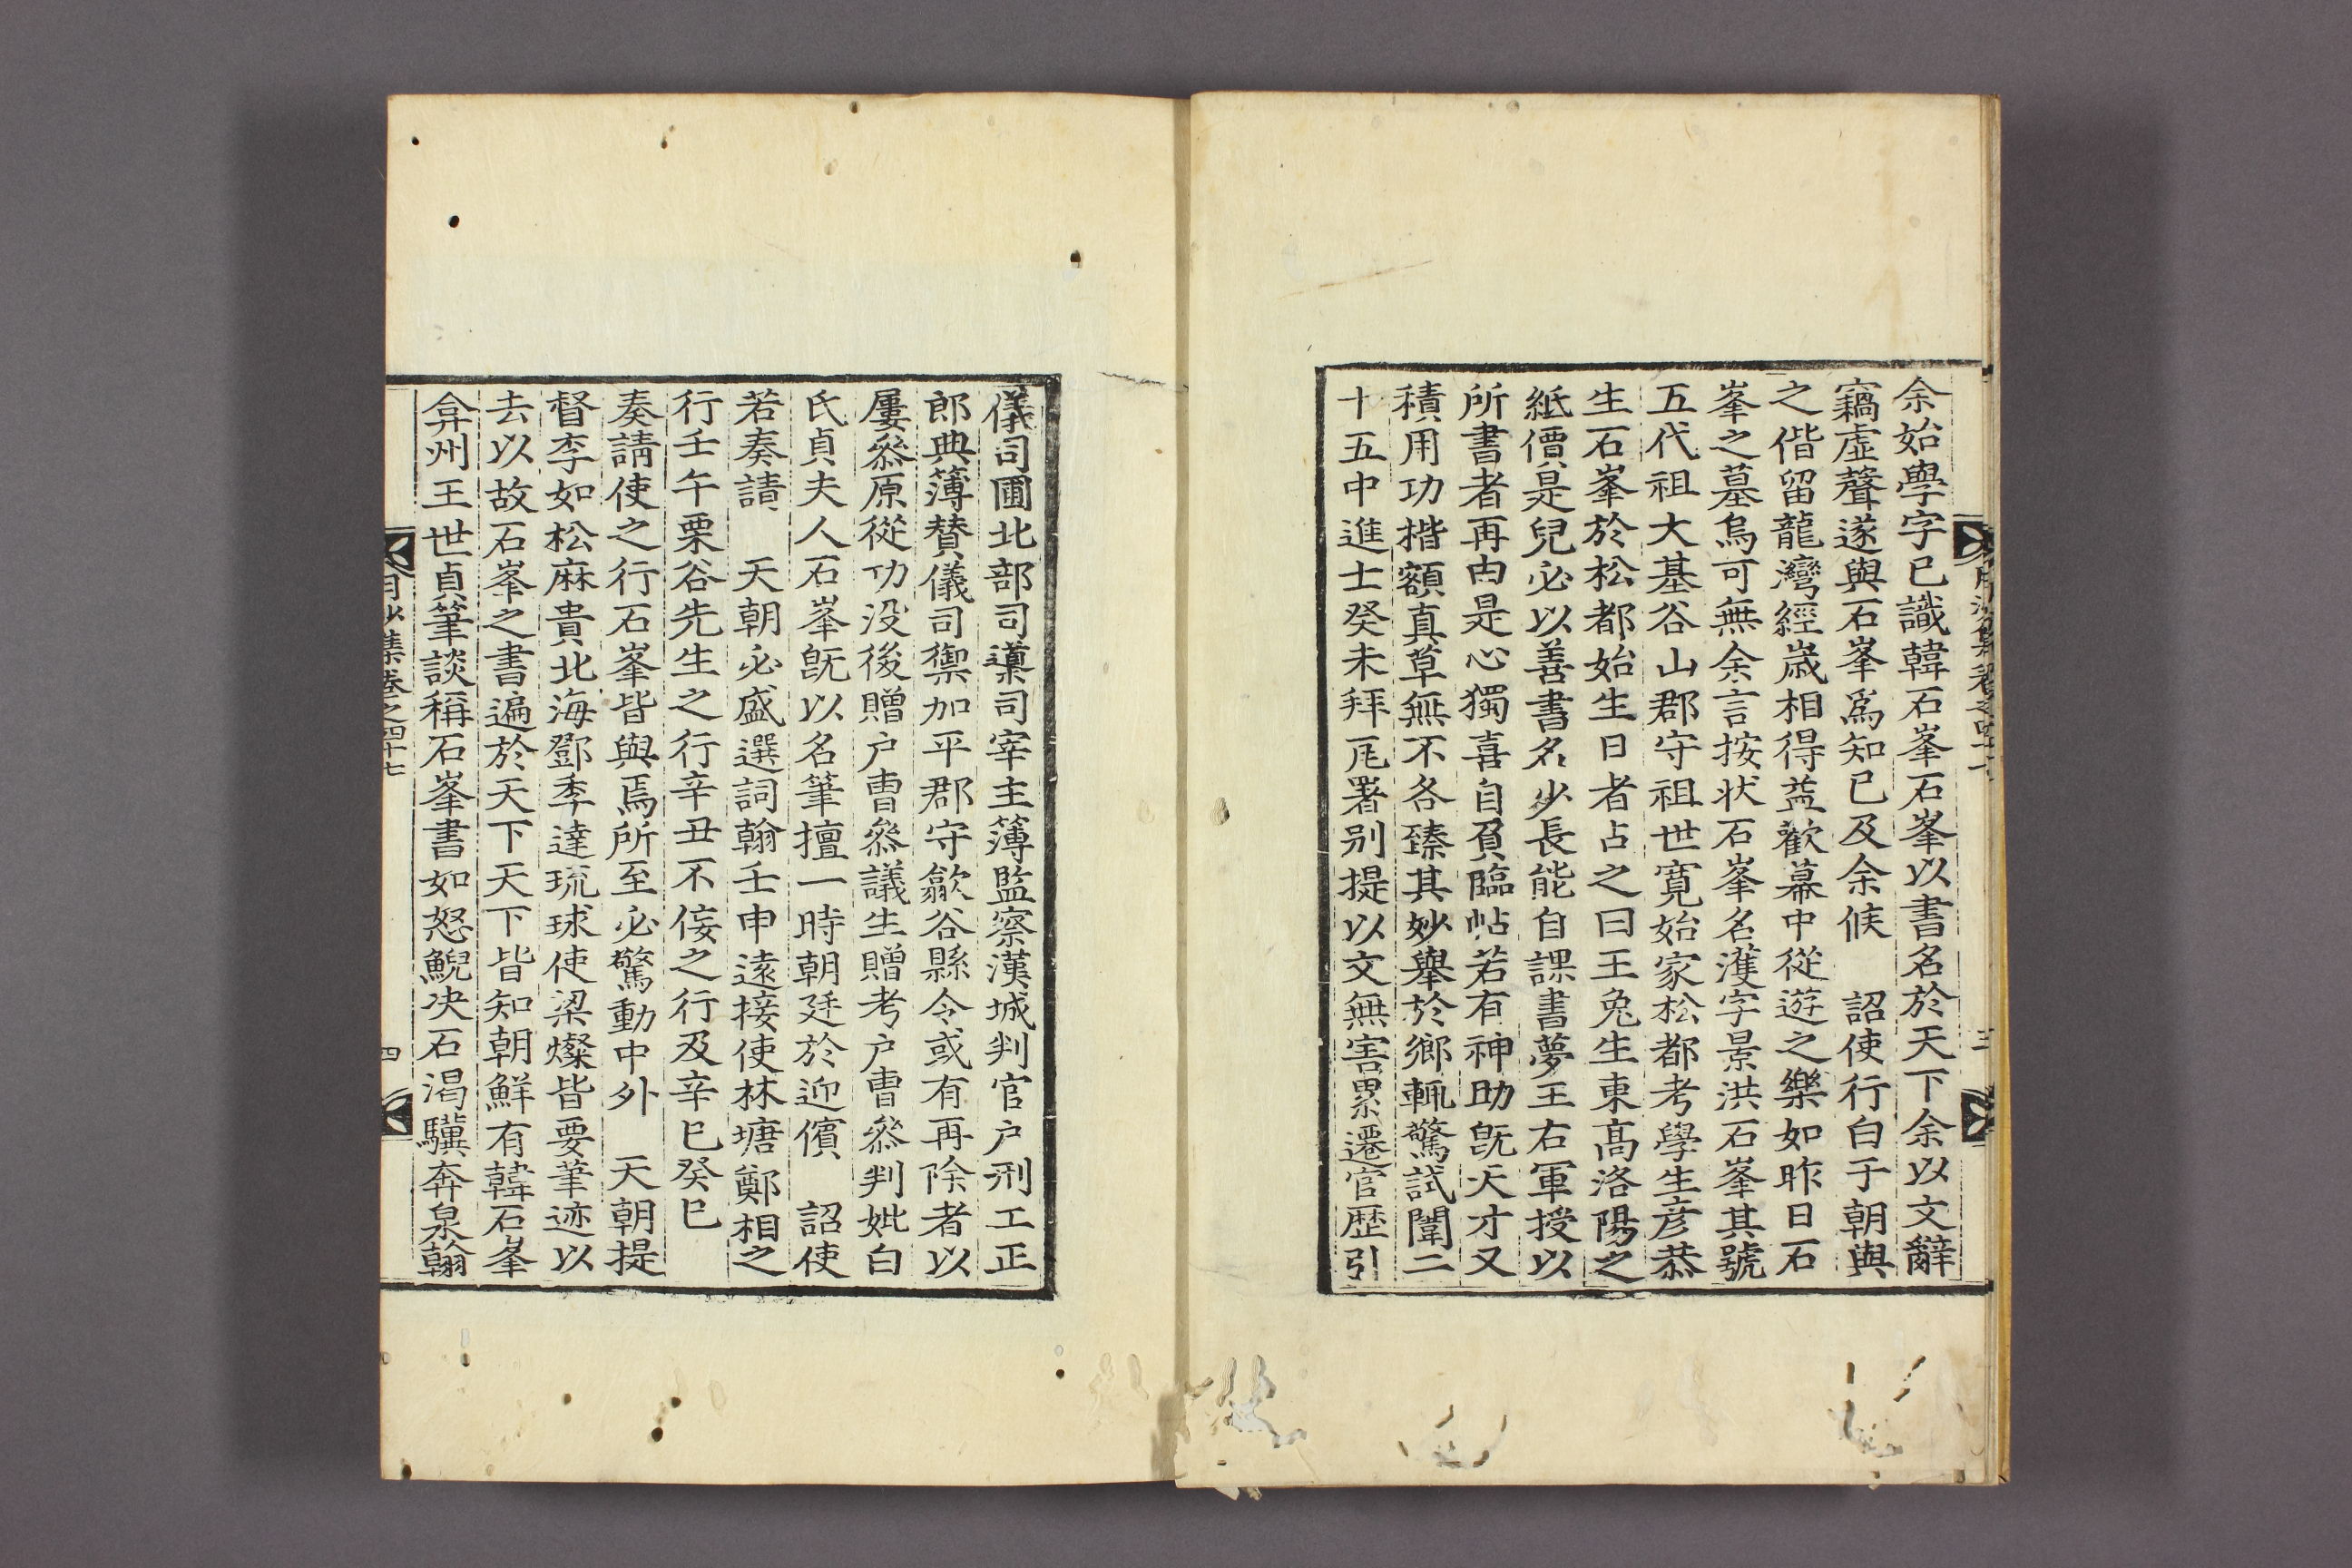 余始學字已識韓石峯石峯以書名於天下余以文辭
竊虛聲遂與石峯爲知已及余候　詔使行白于朝與
之偕留龍灣經歲相得益歡幕中從遊之樂如昨日石
峯之墓烏可無余言按状石峯名濩字景洪石峯其號
五代祖大基谷山郡守祖世寬始家松都考學生彦恭
生石峯於松都始生日者占之曰玉兔生東髙洛陽之
紙價是兒必以善書名少長能自課書夢王右軍授以
所書者再由是心獨喜自負臨帖若有神助旣天才又
積用功楷額真草無不各臻其妙舉於鄉輒驚試闈二
十五中進士癸未拜瓦署别提以文無害累遷官歷引
儀司圃北部司䆃司宰主簿監察漢城判官户刑工正
郎典簿賛儀司禦加平郡守歙谷縣令或有再除者以
屢叅原從功没後贈户曺叅議生贈考户曺叅判妣白
氏貞夫人石峯旣以名筆擅一時朝廷於迎儐　詔使
若奏請　天朝必盛選詞翰壬申逺接使林塘鄭相之
行壬午栗谷先生之行辛丑不侫之行及辛巳癸巳
奏請使之行石峯皆與焉所至必驚動中外　天朝提
督李如松麻貴北海鄧季達琉球使梁燦皆要筆迹以
去以故石峯之書遍於天下天下皆知朝鮮有韓石峯
弇州王世貞筆談稱石峯書如怒猊决石渴驥奔泉翰
月沙集卷之四十七
四
三